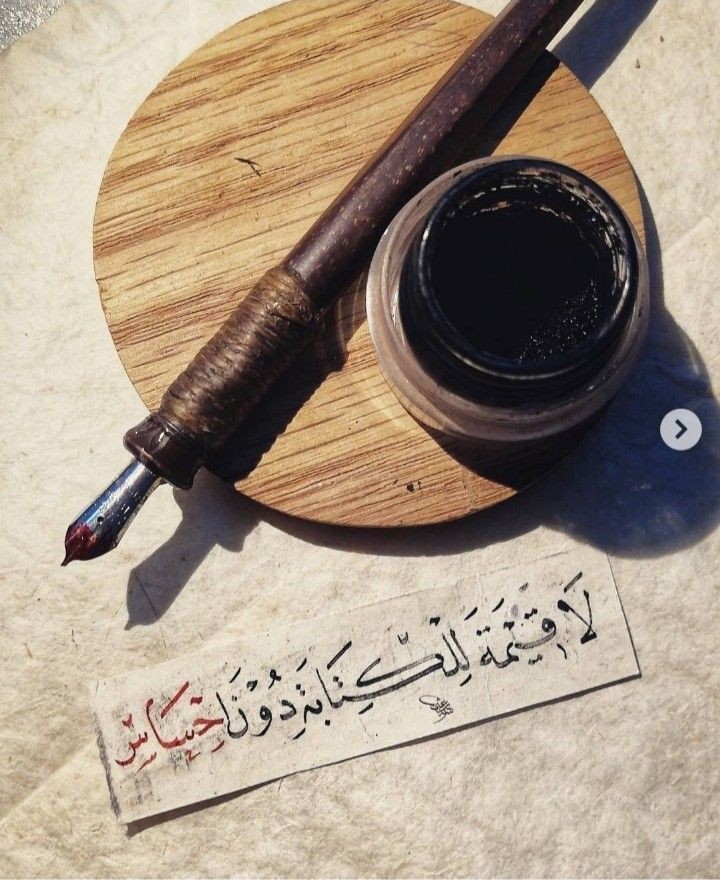 لَا قِيْمَةَ لِلْكِتَابَةِ دُوْنَ اِحْسَاسِ